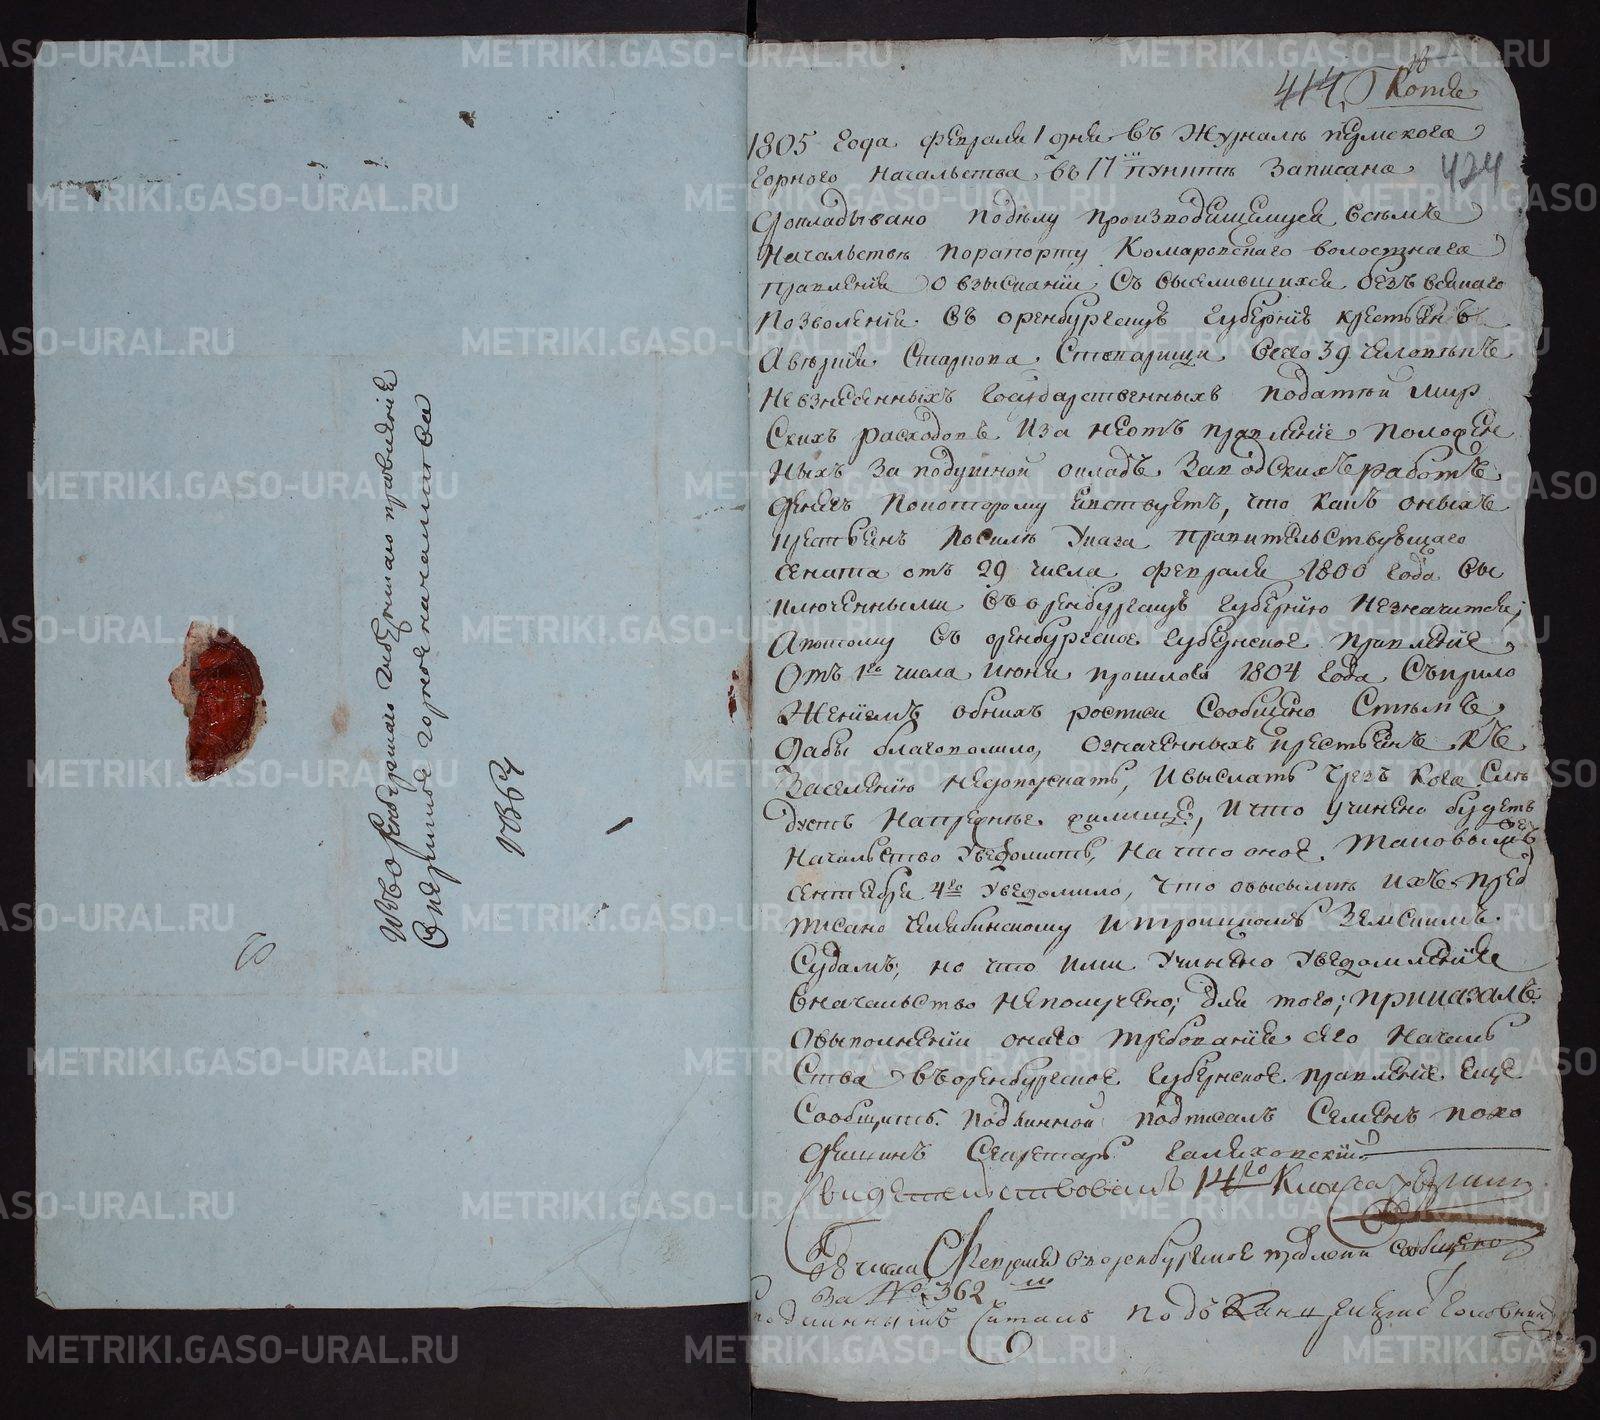 Изъ Оренбургскаго губернскаго правленія
Въ Пермское горное начальство
№ 364
414 Копія
424
1805 года февраля 1 дня въ журналѣ пермскова
горнаго начальства въ 17 пунктѣ записано
Докладывано подѣлу производящемуся всѣмъ
начальствѣ порапорту Комаровскаго волостнаго
правленія о взысканіи съ выселившихся безъ всякаго
позволенія въ оренбургскую губернію крестьянъ
Аверкія Старкова стоварищи всего 39 человѣкъ
невзнесенныхъ государственныхъ податей мир
скихъ расходовъ иза неотъ правленіе положен
ныхъ за подушной окладъ заводскихъ работъ
денегъ покоторому явствуетъ, что какъ оныхъ
крестьянъ посилѣ указа правительствующаго
сената отъ 29 числа февраля 1800 года вы
ключенными въоренбургскую губернію незначится;
апотому въ оренбургское губернское правленіе
отъ 1го числа июня прошлова 1804 года съприло
женіемъ обнихъ росписи сообщено стемъ
дабы благоволило, означенныхъ крестьянъ къ
заселенію недопускать, ивыслать чрезъ кого слѣ
дуетъ напрежнѣе жилище, ичто учинено будетъ
начальство уведомить, на что оное таковымъ
сентября 4го уведомило, что овысылкѣ ихъ пред
писано челябинскому итроицкомъ земскимъ
судамъ, но что ими учинено уведомленіе
вначальство неполучено; для того; приказалъ
овыполненіи онаго требованія сего началь
ства въоренбургское губернское правленіе еще
сообщить. подлинной подписалъ Семенъ похо
дяшинъ секретарь
Свидетельствовалъ 14го Класа
28 числа февраля въоренбургское правленіе сообщено
за № 362
подлиннымъ читалъ подъканцеляристъ Головнин